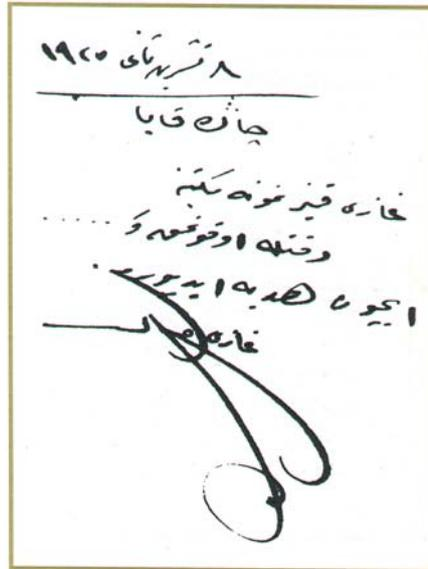 ٨ تشرين ثانى ١٩٢٥
چان قايا
غازى قيز نمونه مكتبنه
وقتله اوقونمق و ......
ايچون هديه ايديورم.
غازى م